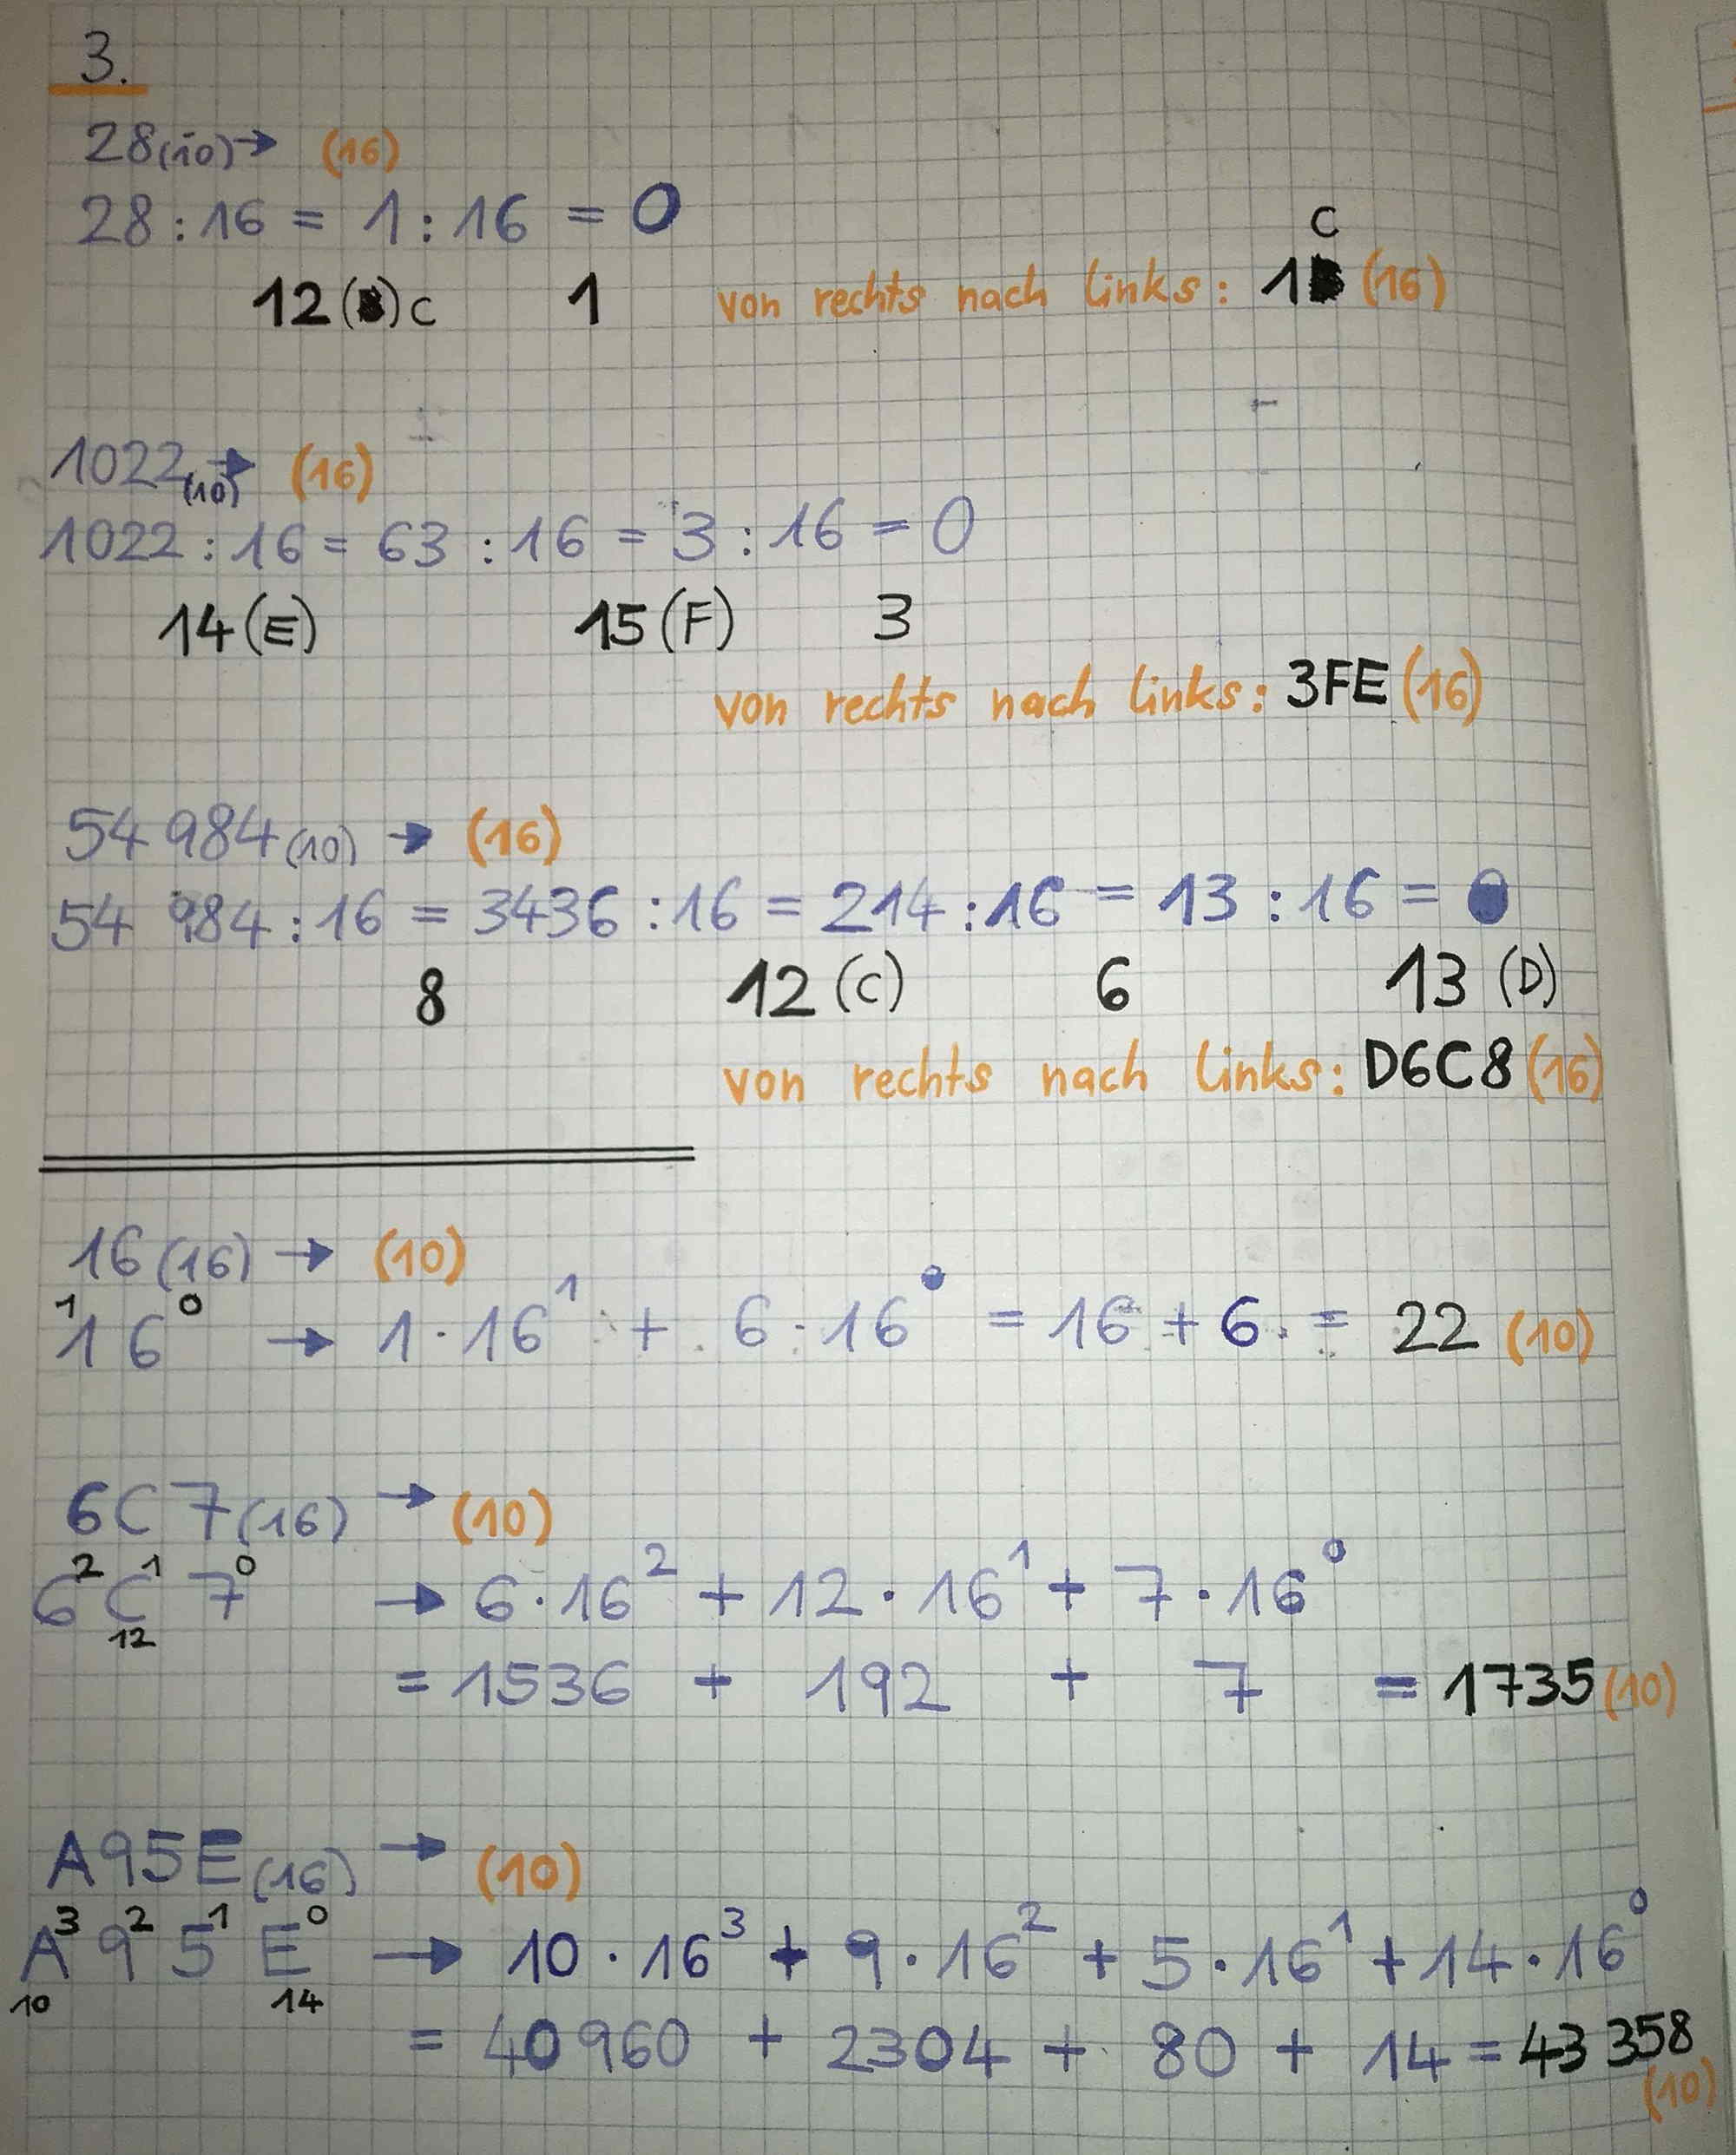 3.
28(10)→ (16)
28 : 16 = 1 : 16 = 0
C
12 ( ) C 1 von rechts nach links: 1 (16)
1022(10)→ (16)
1022 : 16 = 63 : 16 = 3 : 16 = 0
14 (E) 15 (F) 3
von rechts nach links: 3FE (16)
54 984(10) → (16)
54 984 : 16 = 3436 : 16 = 214 : 16 = 13 : 16 = 0
8 12 (C) 6 13 (D)
von rechts nach links: D6C8 (16)
16(16) → (10)
1¹6⁰ → 1 · 16¹ + 6 · 16⁰ = 16 + 6 = 22 (10)
6C7(16) → (10)
6²C¹7⁰ → 6 · 16² + 12 · 16¹ + 7 · 16⁰
12
= 1536 + 192 + 7 = 1735 (10)
A95E(16) → (10)
A³9²5¹E⁰ → 10 · 16³ + 9 · 16² + 5 · 16¹ + 14 · 16⁰
10 14
= 40960 + 2304 + 80 + 14 = 43 358
(10)